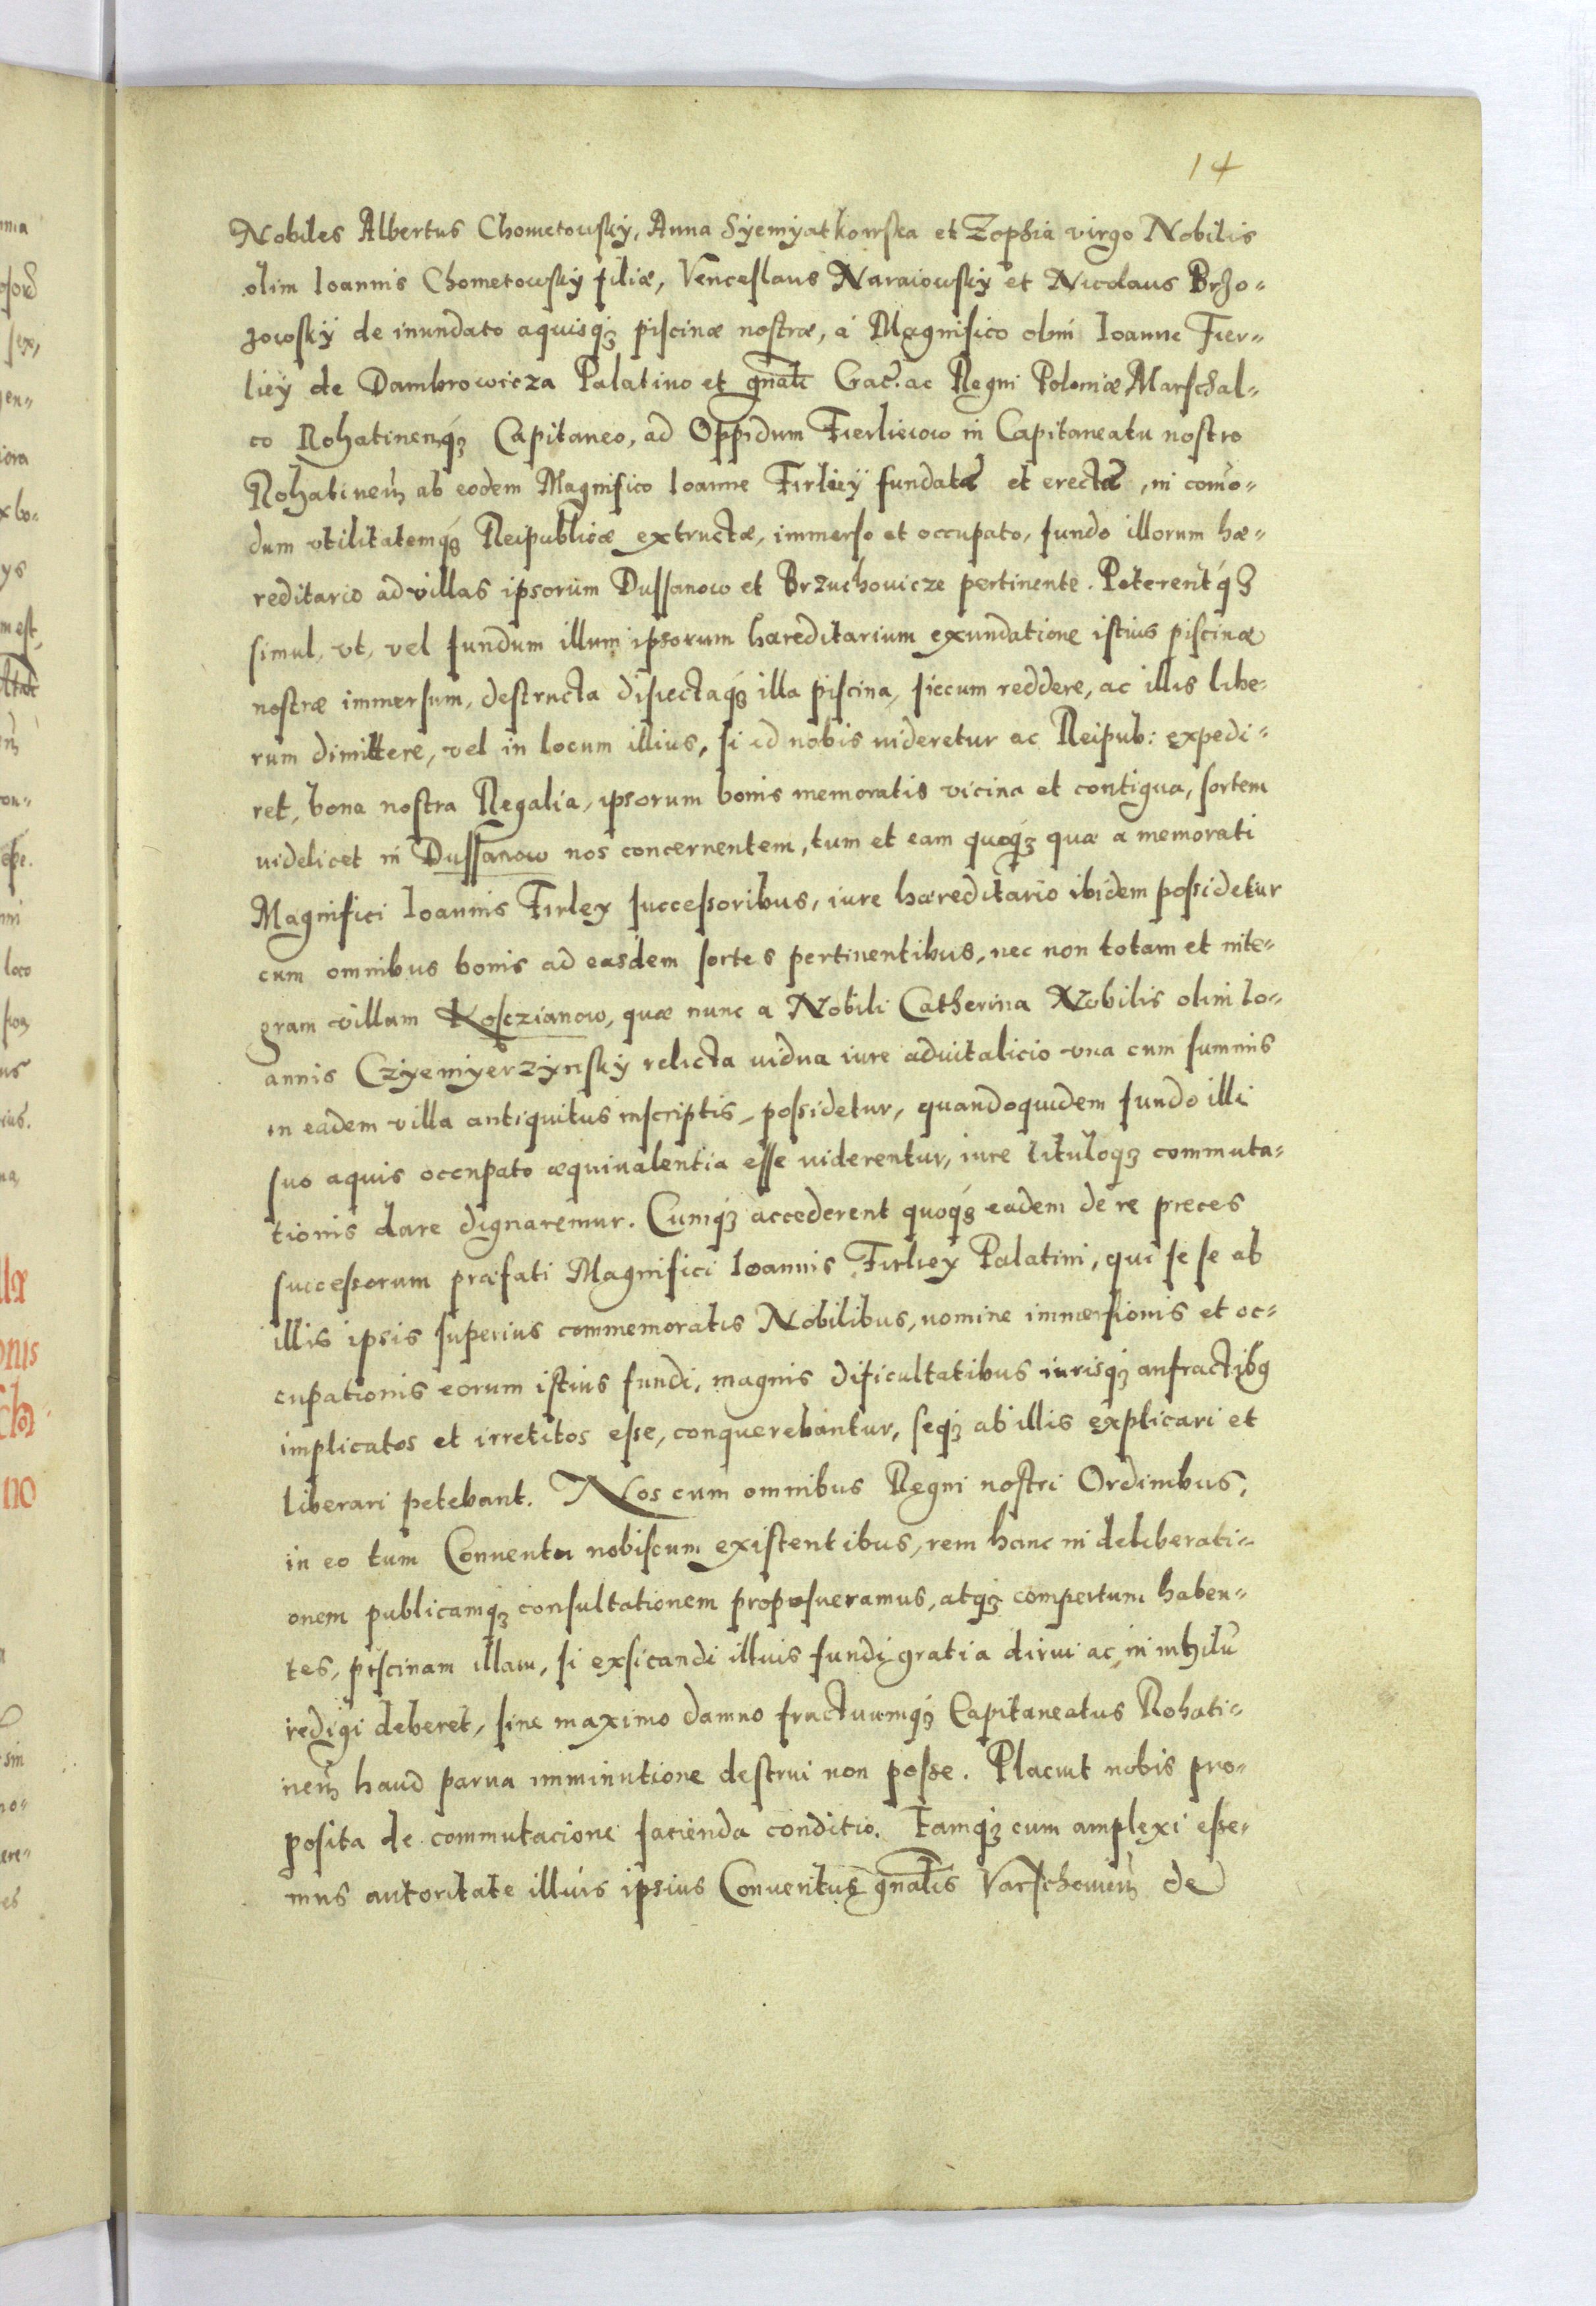 14
Nobiles Albertus Chometowskÿ, Anna Sÿemÿatkowska et Zophia virgo Nobilis
olim Ioannis Chometowskÿ filiæ, Venceslaus Naraiowskÿ et Nicolaus Brzo-
zowskÿ de inundato aquisqꝫ piscinæ nostræ, à Magnifico olim Ioanne Fier-
lieÿ de Dambrowicza Palatino et gn̄ali Crac̄. ac Regni Poloniæ Marschal-
co Rohatinen̄qꝫ Capitaneo, ad Oppidum Fierlieiow in Capitaneatu nostro
Rohatinen̄ ab eodem Magnifico Ioanne Firlieÿ fundatæ et erectæ, in com̄o-
dum vtilitatemqꝫ Reipublicæ extructæ, immerso et occupato, fundo illorum hæ-
reditario ad villas ipsorum Dussanow et Brzuchouicze pertinente. Peterentqꝫ
simul, vt, vel fundum illum ipsorum hæreditarium exundatione istius piscinæ
nostræ immersum, destructa disiectaqꝫ illa piscina, siccum reddere, ac illis libe-
rum dimittere, vel in locum illius, si id nobis uideretur ac Reipub: expedi-
ret, bona nostra Regalia, ipsorum bonis memoratis vicina et contigua, sortem
uidelicet in Dussanow nos concernentem, tum et eam quoqꝫ quæ a memorati
Magnifici Ioannis Firley successoribus, iure hæreditario ibidem possidetur
cum omnibus bonis ad easdem sortes pertinentibus, nec non totam et inte-
gram villam Kosczianow, quæ nunc a Nobili Catherina Nobilis olim Io-
annis Czÿemÿerzÿnskÿ relicta uidua iure aduitalicio vna cum summis
in eadem villa antiquitus inscriptis, possidetur, quandoquidem fundo illi
suo aquis occupato æquiualentia esse uiderentur, iure tituloqꝫ commuta-
tionis dare dignaremur. Cumqꝫ accederent quoqꝫ eadem de re preces
successorum præfati Magnifici Ioannis Firliey Palatini, qui se se ab
illis ipsis superius commemoratis Nobilibus, nomine immersionis et oc-
cupationis eorum istius fundi, magnis dificultatibus iurisqꝫ anfractibꝫ
implicatos et irretitos esse, conquerebantur, seqꝫ ab illis explicari et
liberari petebant. Nos cum omnibus Regni nostri Ordinibus,
in eo tum Conuentu nobiscum existentibus, rem hanc in deliberati-
onem publicamqꝫ consultationem proposueramus, atqꝫ compertum haben-
tes, piscinam illam, si exsicandi illius fundi gratia dirui ac in nihilū
redigi deberet, sine maximo damno fructuumqꝫ Capitaneatus Rohati-
nen̄ haud parua imminutione destrui non posse. Placuit nobis pro-
posita de commutacione facienda conditio. Eamqꝫ cum amplexi esse-
mus autoritate illius ipsius Conuentus gn̄alis Varschouien̄ de